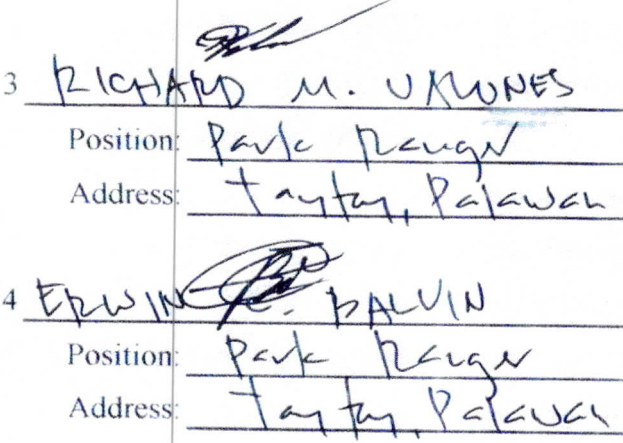 3 RICHARD M.
Position: Park Ranger
Address: Taytay, Palawan
4 ERWIN BALVIN
Position: Park Ranger
Address: Taytay, Palawan